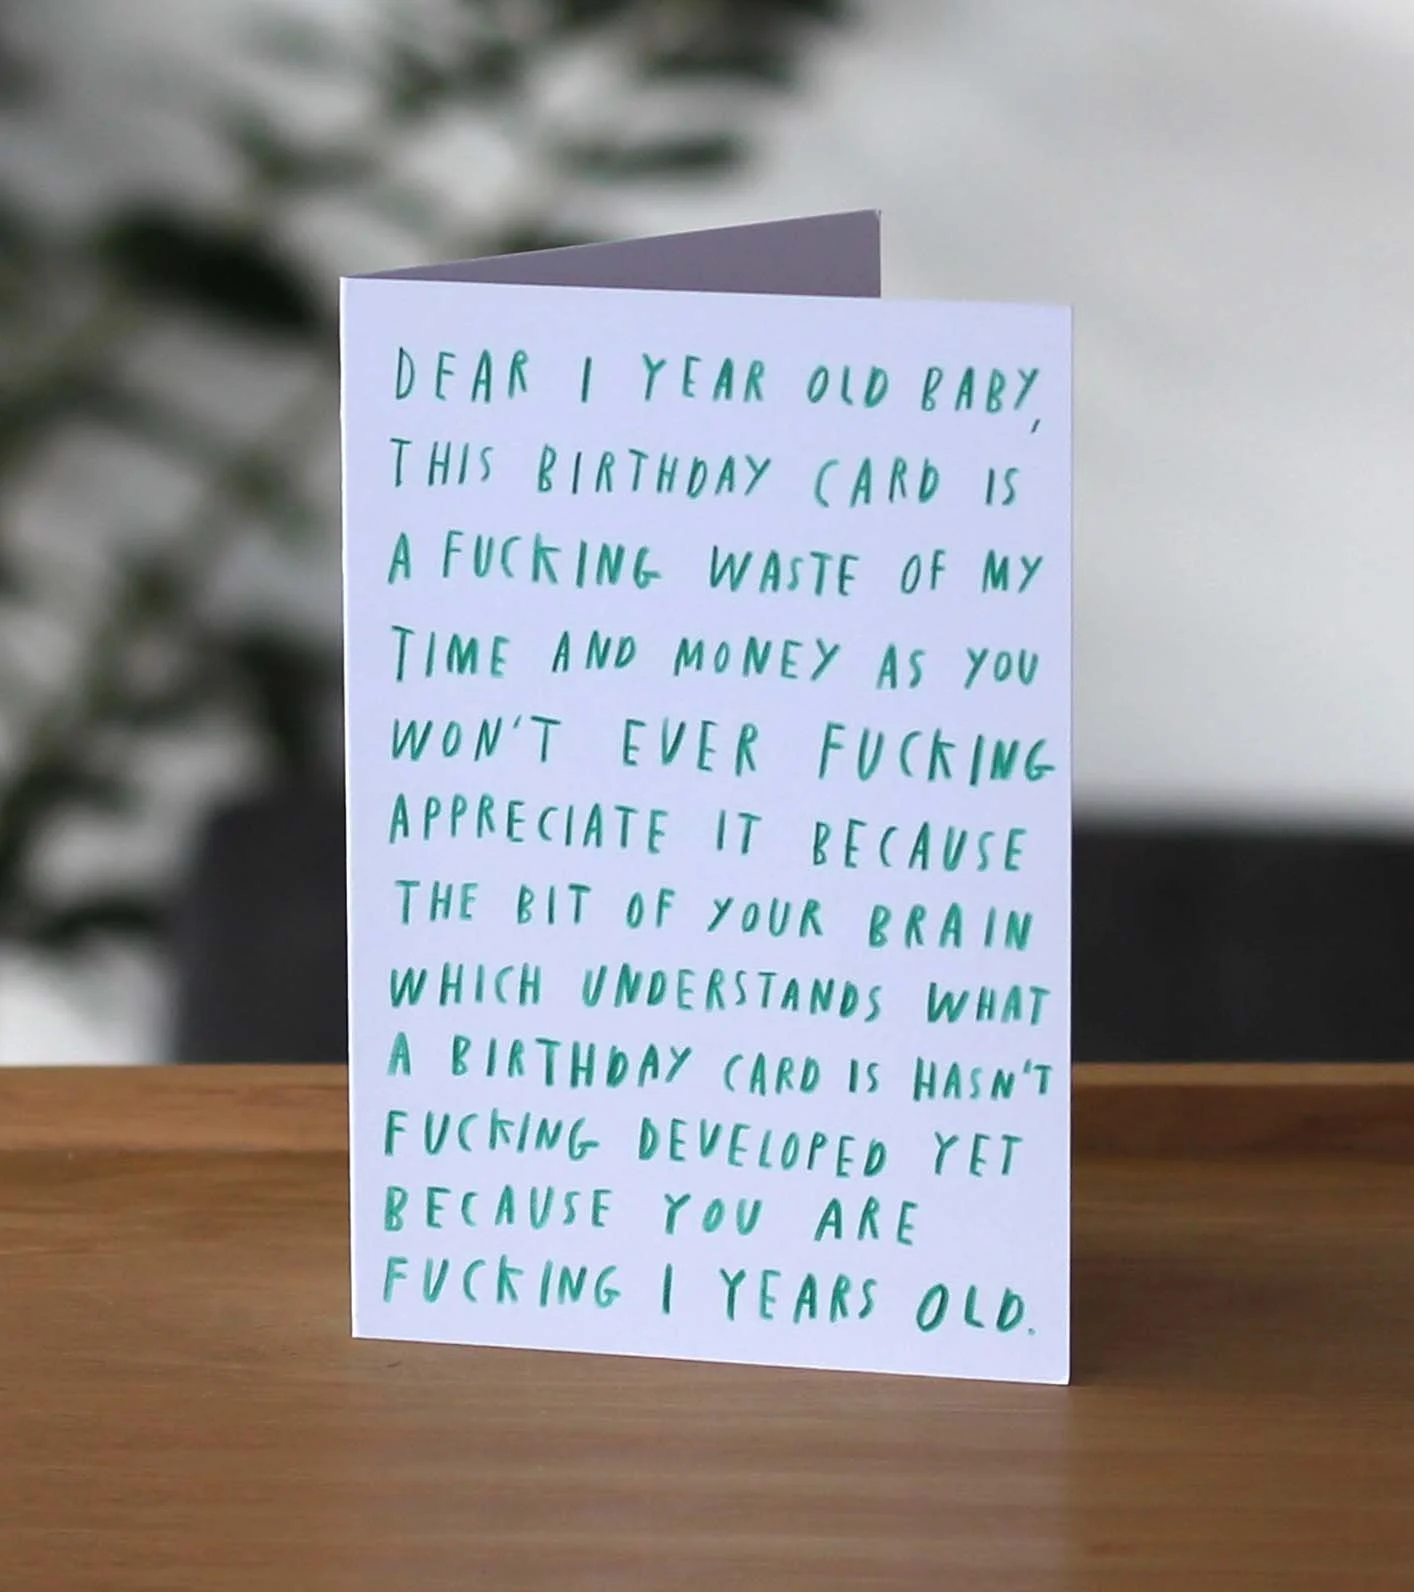 DEAR 1 YEAR OLD BABY,
THIS BIRTHDAY CARD IS
A FUCKING WASTE OF MY
TIME AND MONEY AS YOU
WON'T EVER FUCKING
APPRECIATE IT BECAUSE
THE BIT OF YOUR BRAIN
WHICH UNDERSTANDS WHAT
A BIRTHDAY CARD IS HASN'T
FUCKING DEVELOPED YET
BECAUSE YOU ARE
FUCKING 1 YEARS OLD.